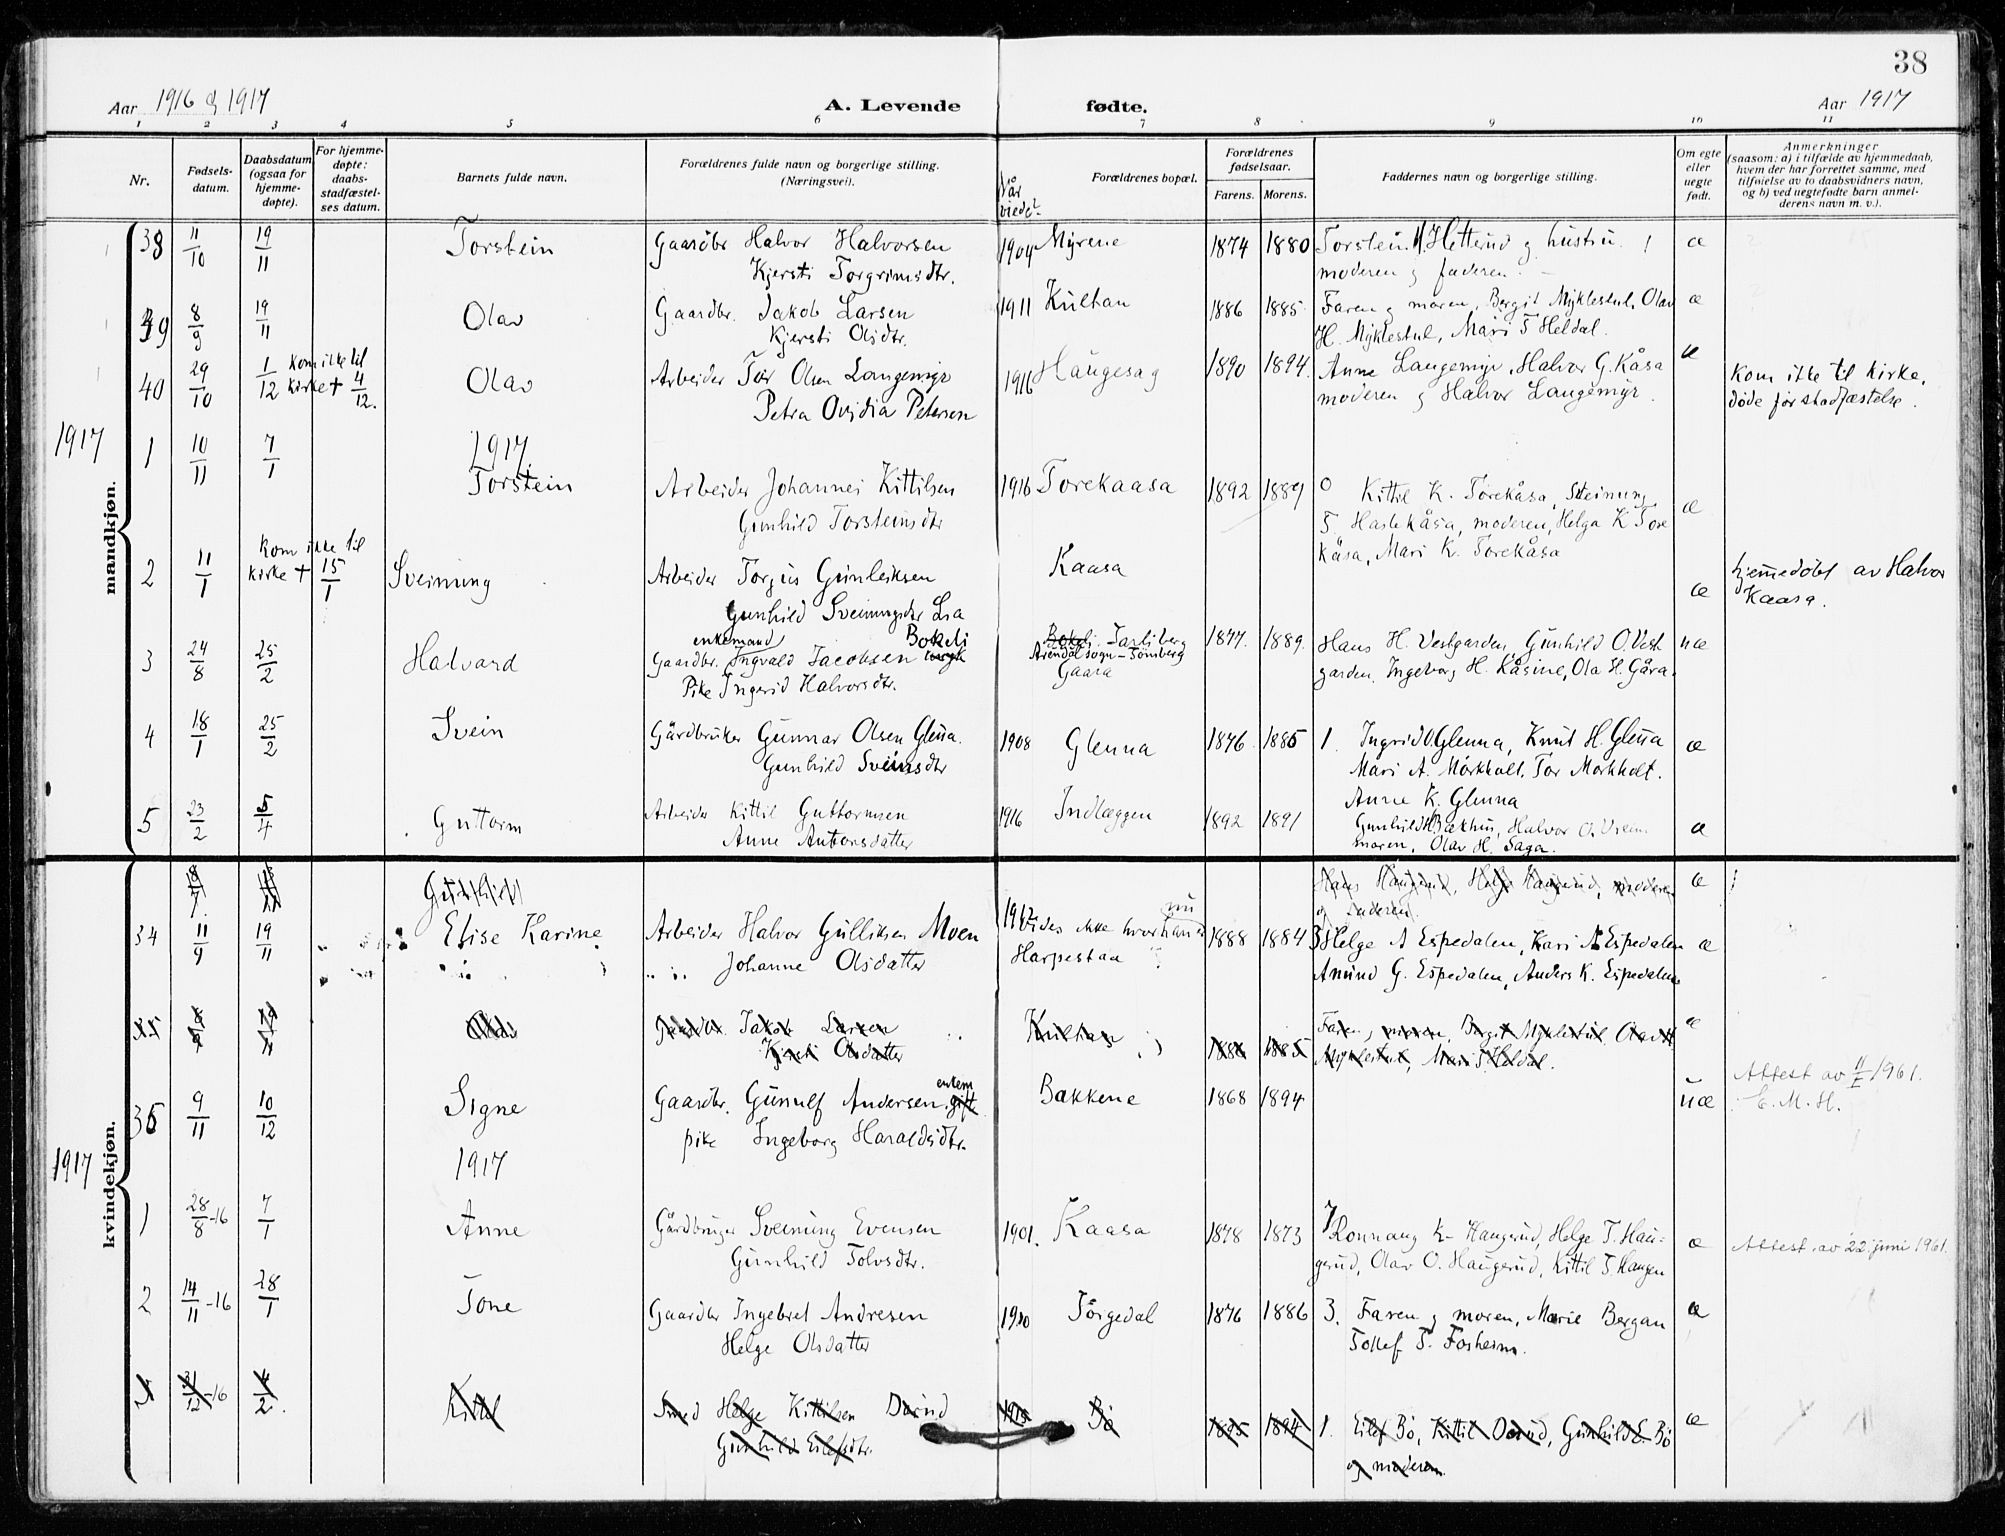 38
Aar 1916 og 1917 A. Levende fødte. Aar 1917
1 2 3 4 5 6 7 8 9 10 11
Nr.
Fødsels-
datum.
Daabsdatum
(ogsaa for
hjemme-
døpte).
For hjemme-
døpte:
daabs-
stadfæstel-
ses datum.
Barnets fulde navn.
Forældrenes fulde navn og borgerlige stilling.
(Næringsvei).
Når
viede?
Forældrenes bopæl.
Forældrenes
fødselsaar.
Farens. Morens.
Faddernes navn og borgerlige stilling.
Om egte
eller
uegte
født.
Anmerkninger
(saasom: a) i tilfælde av hjemmedaab,
hvem der har forrettet samme, med
tilføielse av to daabsvidners navn,
og b) ved uegtefødte barn anmel-
derens navn m. v.).
mandkjøn.
38 11/10 19/11 Torstein Gaardbr Halvor Halvorsen 1904 Myrene 1874 1880 Torstein H. Hetterud og hustru. æ
Kjersti Torgrimsdtr. moderen og faderen.
39 8/9 19/11 Olav Gaardbr. Jakob Larsen 1911 Kultan 1886 1885. Faren og moren, Bergit Myklestul, Olav æ
Kjersti Olsdtr. H. Myklestul, Mari T Heldal.
40 29/10 1/12 kom ikke til Olav Arbeider Tor Olsen Langemyr 1916 Haugesag 1890 1894. Anne Langemyr, Halvor G. Kåsa æ Kom ikke til kirke,
kirke + 4/12. Petra Ovidia Petersen moderen og Halvor Langemyr. døde før stadfæstelse.
1917
1 10/11 7/1 1917.
Torstein Arbeider Johannes Kittilsen 1916 Torekaasa 1892 1889 Kittil K. Torekåsa, Steinung
Gunhild Torsteinsdtr T. Haslekåsa, moderen, Helga K Tore æ
kåsa, Mari K. Torekåsa
2 11/1 kom ikke til Sveinung Arbeider Torjus Gunleiksen Kaasa hjemmedøbt av Halvor
kirke + 15/1 Gunhild Sveinungsdtr Lia æ Kaasa.
3 24/8 25/2 Halvard enkemand Bokeli
Gaardbr. Ingvald Jacobsen Bokeli. Jarlsberg 1877. 1889. Hans H. Vestgarden, Gunhild O. Vest uæ
Pike Ingerid Halvorsdtr. Arendal sogn - Tönsberg garden, Ingeborg H. Kåsine, Ola H. Gåra.
Gaara
4 18/1 25/2 Svein Gårdbruker Gunnar Olsen Glenna. 1908 Glenna 1876. 1885 1. Ingrid O. Glenna, Knut H. Glenna æ
Gunhild Sveinsdtr Mari A. Mørkholt, Tor Mørkholt.
Anne K. Glenna
5 23/2 5/4 Guttorm Arbeider Kittil Guttormsen 1916 Indlæggen 1892 1891 Gunhild H Bækhus, Halvor O. æ
Anne Antonsdatter moren, Olav H. Saga.
kvindekjøn.
Gunhild Hans Haugerud, Helge Haugerud, moderen æ
og faderen.
34 11/9 19/11 Elise Karine Arbeider Halvor Gulliksen Moen 1912 vides ikke hvor han nu er 1888 1884 3 Helge A Espedalen, Kari A Espedalen æ
Johanne Olsdatter Harpestaa Amund G. Espedalen, Anders K. Espedalen
35 8/9 19/11 Olav Gaardbr. Jakob Larsen Kultan 1886 1885 Faren og moren, Bergit Myklestul, Olav H. æ
Kjersti Olsdatter Myklestul, Mari T Heldal.
35 9/11 10/12 Signe Gaardbr. Gunulf Andersen, gift enkem Bakkene 1868 1894 uæ Attest av 11/I 1961.
pike Ingeborg Haraldsdtr. E. M. H.
1917 1917
1 28/8-16 7/1 Anne Gårdbruger Sveinung Evensen 1901. Kaasa 1878 1873 7 Ronnaug K. Haugerud, Helge T. Hau- æ Attest av 22. juni 1961.
Gunhild Tolvsdtr. gerud, Olav O. Haugerud, Kittil T. Haugen
2 14/11-16 28/1 Tone Gaardbr Ingebret Andresen 1910 Tørgedal 1876 1886 3. Faren og moren, Marie Bergan æ
Helge Olsdatter Tollef T. Fosheim.
3 31/12-16 4/2. Kittil Smed Helge Kittilsen Dorud Bø 1895 1894 1. Eilef Bø, Kittil Dorud, Gunhild E. Bø æ
Gunhild Eilefsdtr. og moderen.